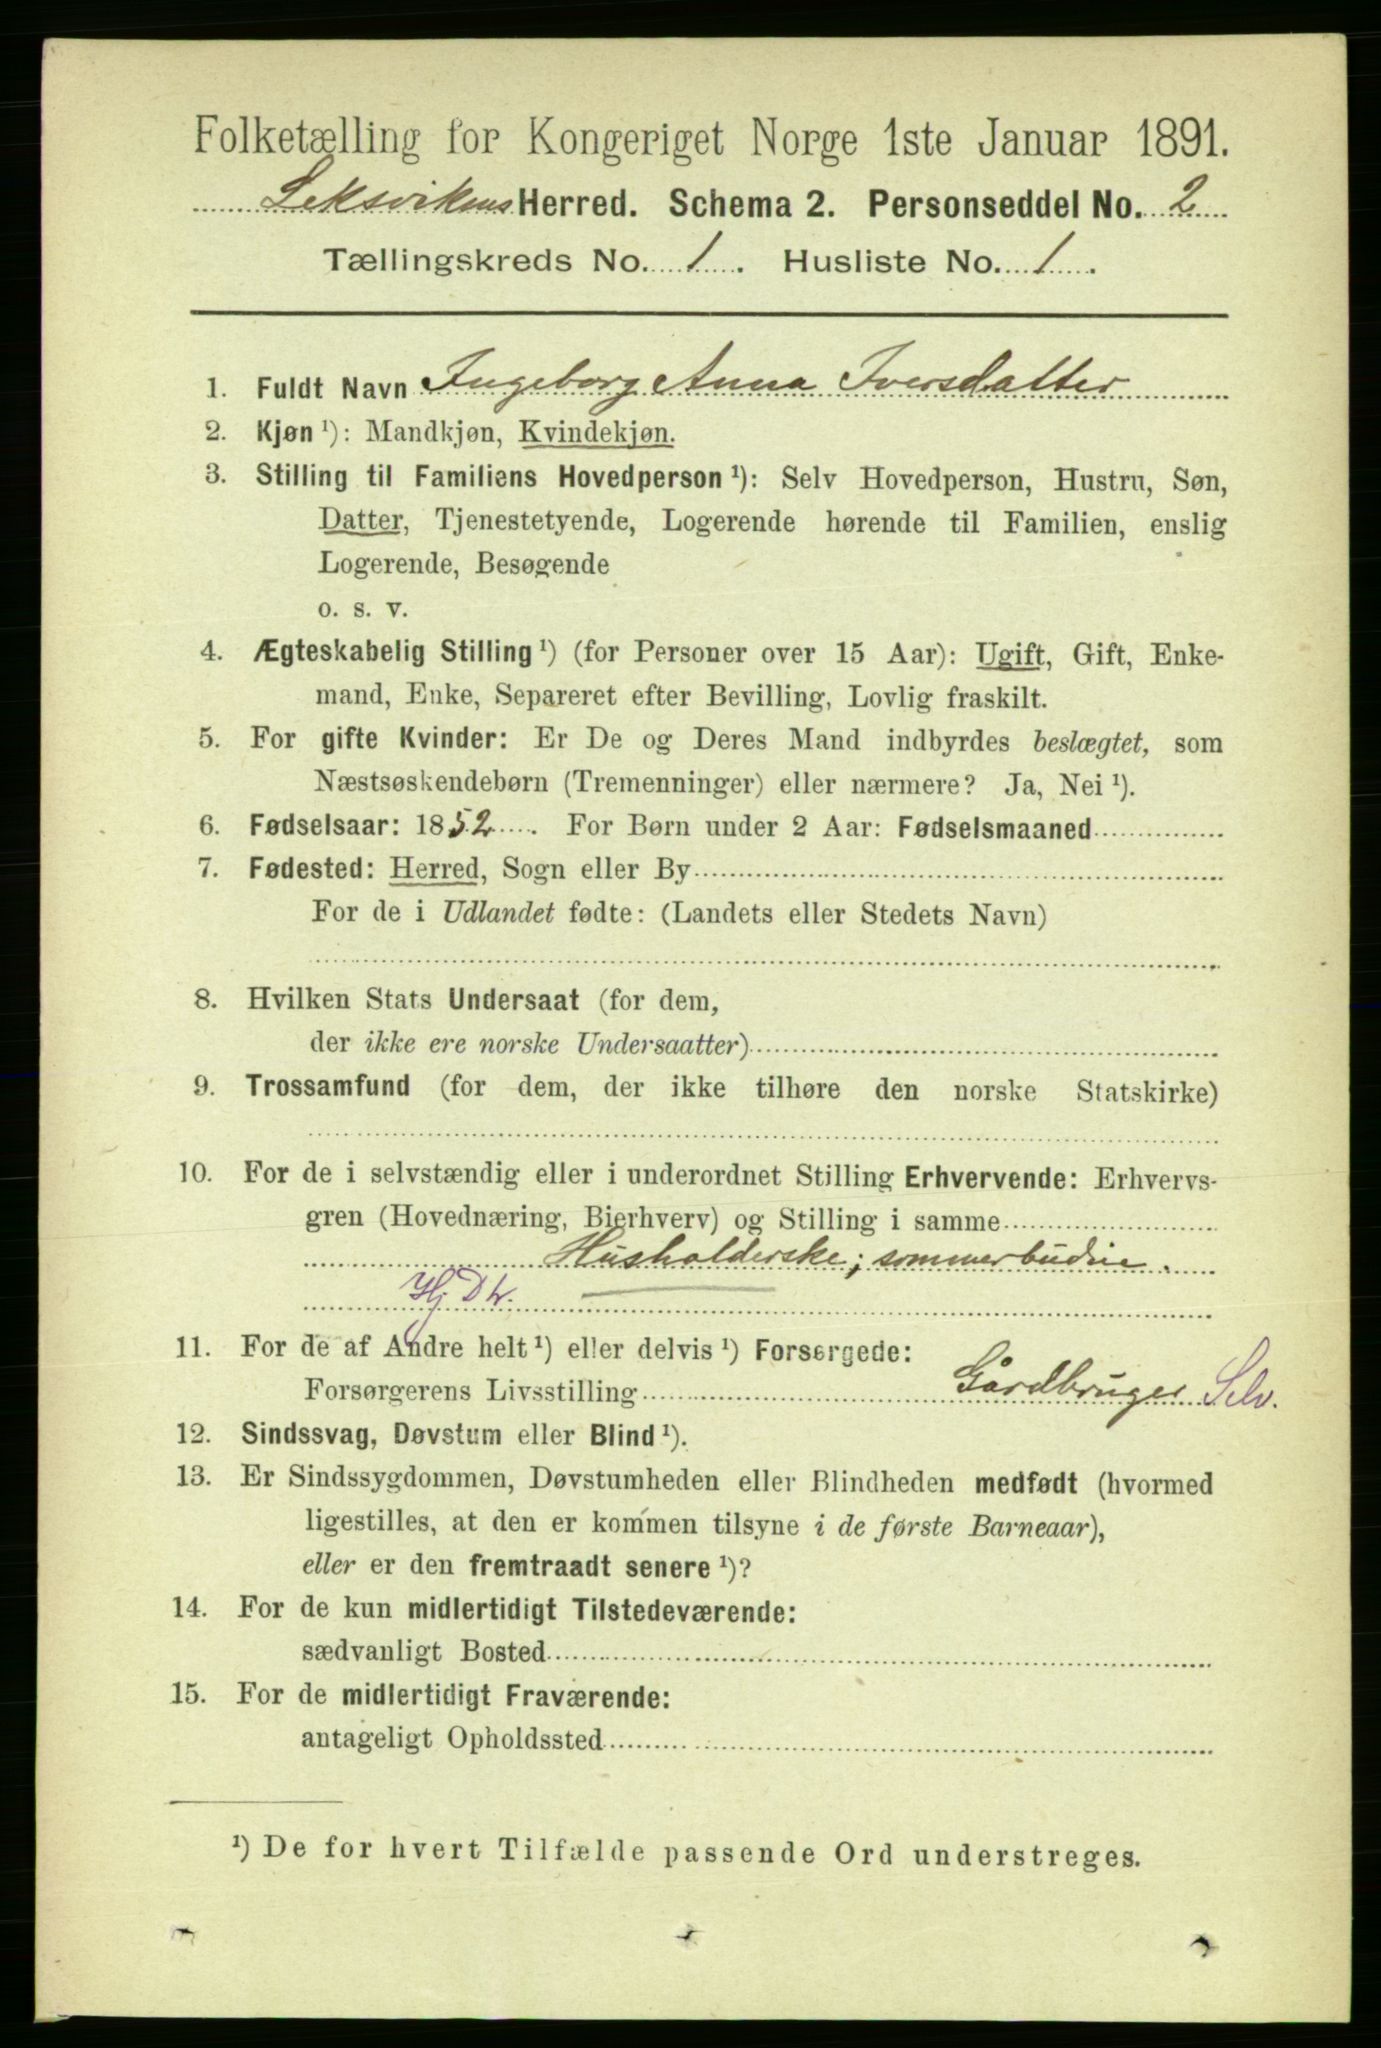 Folketælling for Kongeriget Norge 1ste Januar 1891.
Leksvikens Herred. Schema 2. Personseddel No. 2
Tællingskreds No. 1. Husliste No. 1.
1. Fuldt Navn Ingeborg Anna Iversdatter
2. Kjøn ¹): Mandkjøn, Kvindekjøn.
3. Stilling til Familiens Hovedperson ¹): Selv Hovedperson, Hustru, Søn,
Datter, Tjenestetyende, Logerende hørende til Familien, enslig
Logerende, Besøgende
o. s. v.
4. Ægteskabelig Stilling ¹) (for Personer over 15 Aar): Ugift, Gift, Enke-
mand, Enke, Separeret efter Bevilling, Lovlig fraskilt.
5. For gifte Kvinder: Er De og Deres Mand indbyrdes beslægtet, som
Næstsøskendebørn (Tremenninger) eller nærmere? Ja, Nei ¹).
6. Fødselsaar: 1852. For Børn under 2 Aar: Fødselsmaaned
7. Fødested: Herred, Sogn eller By
For de i Udlandet fødte: (Landets eller Stedets Navn)
8. Hvilken Stats Undersaat (for dem,
der ikke ere norske Undersaatter)
9. Trossamfund (for dem, der ikke tilhøre den norske Statskirke)
10. For de i selvstændig eller i underordnet Stilling Erhvervende: Erhvervs-
gren (Hovednæring, Bierhverv) og Stilling i samme
Husholderske; sommer budeie.
Hj Dtr.
11. For de af Andre helt ¹) eller delvis ¹) Forsørgede:
Forsørgerens Livsstilling Gårdbruger Selv.
12. Sindssvag, Døvstum eller Blind ¹).
13. Er Sindssygdommen, Døvstumheden eller Blindheden medfødt (hvormed
ligestilles, at den er kommen tilsyne i de første Barneaar),
eller er den fremtraadt senere ¹)?
14. For de kun midlertidigt Tilstedeværende:
sædvanligt Bosted
15. For de midlertidigt Fraværende:
antageligt Opholdssted
¹) De for hvert Tilfælde passende Ord understreges.